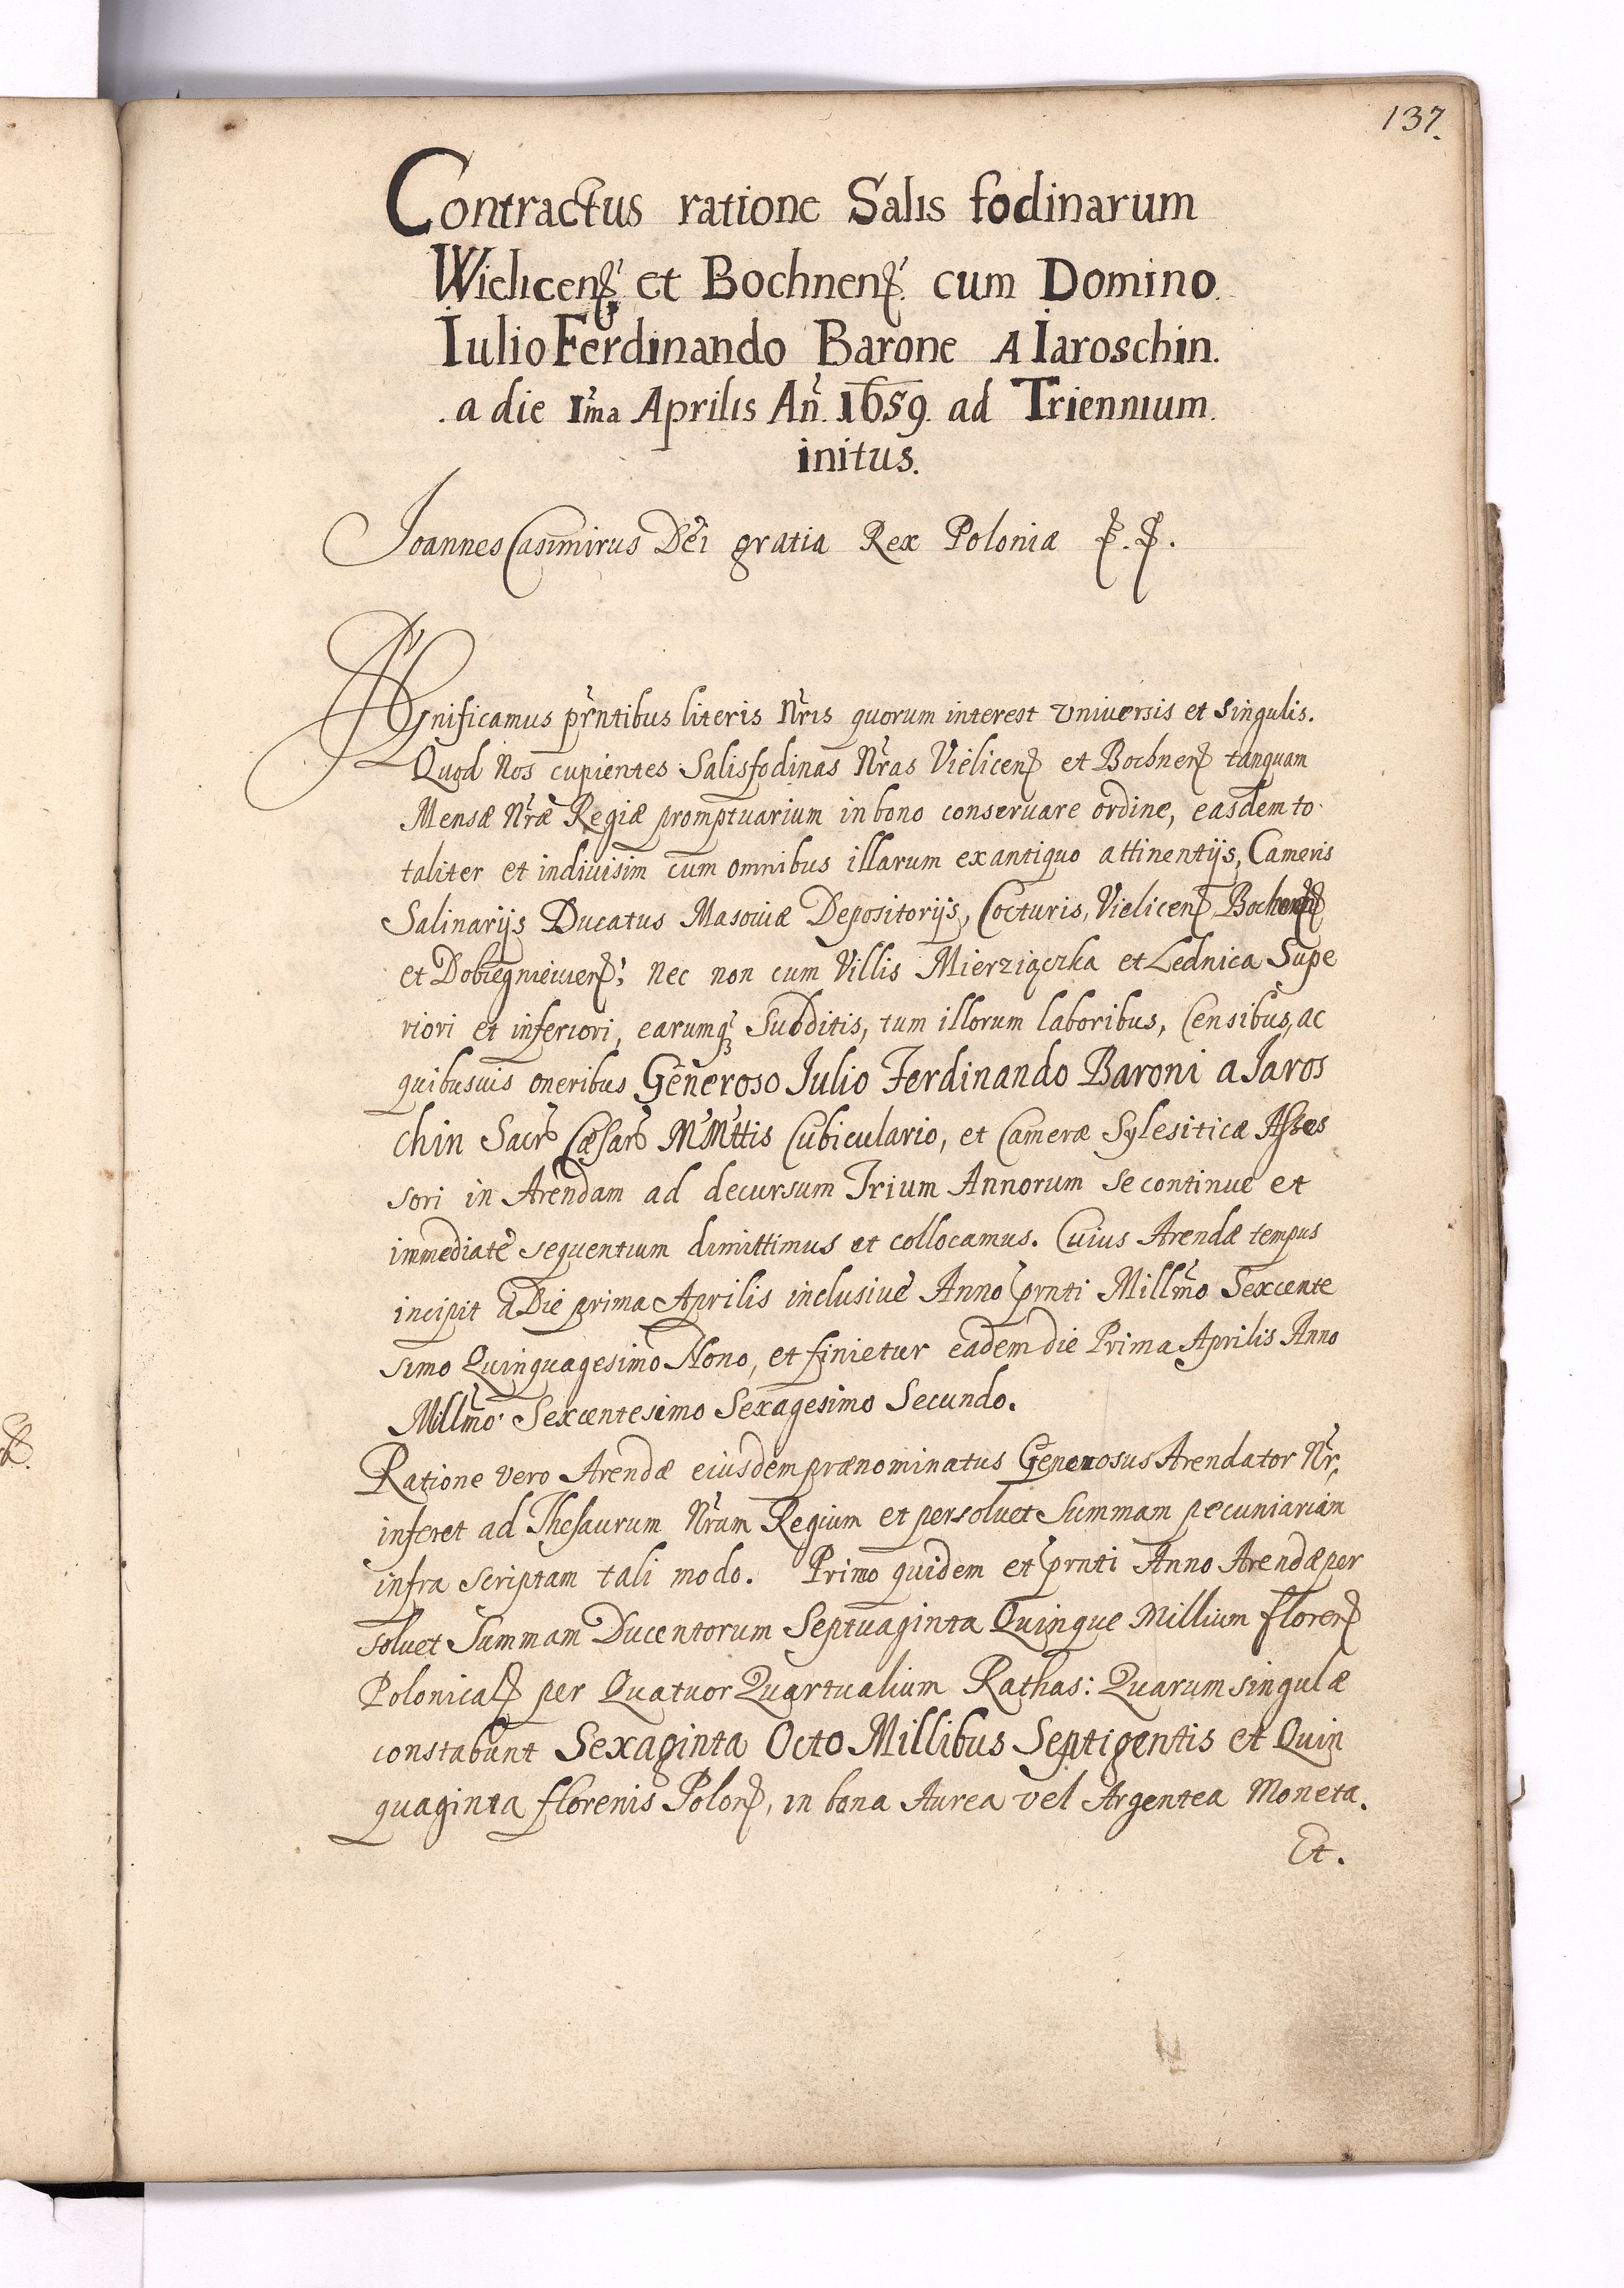 137.
Contractus ratione Salis fodinarum
Wielicens et Bochnens. cum Domino.
Iulio Ferdinando Barone A Iaroschin.
.a die Ima Aprilis An. 1659. ad Triennium.
initus.
Joannes Casimirus Dei gratia Rex Poloniæ
Significamus prntibus literis Nris quorum interest Universis et singulis.
Quod Nos cupientes Salisfodinas Nras Vielicens et Bochnens tanquam
Mensæ Nræ Regiæ promptuarium in bono conservare ordine, easdem to
taliter et indivisim cum omnibus illarum ex antiquo attinentijs, Cameris
Salinarijs Ducatus Masoviæ Depositorijs, Cocturis, Vielicens Bochnens
et Dobiegnieviens; nec non cum Villis Mierziączka et Lednica Supe
riori et inferiori, earumq3 Subditis, tum illorum laboribus, Censibus, ac
quibusvis oneribus Generoso Julio Ferdinando Baroni a Jaros
chin Sacr Cæsar M Mttis Cubiculario, et Cameræ Sylesiticæ Asses
sori in Arendam ad decursum Trium Annorum se continue et
immediatè sequentium dimittimus et collocamus. Cuius Arendæ tempus
incipit à Die prima Aprilis inclusivè Anno prnti Millmo Sexcente
simo Quinquagesimo Nono, et finietur eadem die Prima Aprilis Anno
Millmo. Sexcentesimo Sexagesimo Secundo.
Ratione vero Arendæ eiusdem prænominatus Generosus Arendator Nr,
inferet ad Thesaurum Nrum Regium et persolvet Summam pecuniariam
infra scriptam tali modo. Primo quidem et prnti Anno Arendæ per
solvet Summam Ducentorum Septuaginta Quinque Millium floren
Polonical per Quatuor Quartualium Rathas: Quarum singulæ
constabunt Sexaginta Octo Millibus Septigentis et Quin
quaginta florenis Polon, in bona Aurea vel Argentea Moneta.
Et.